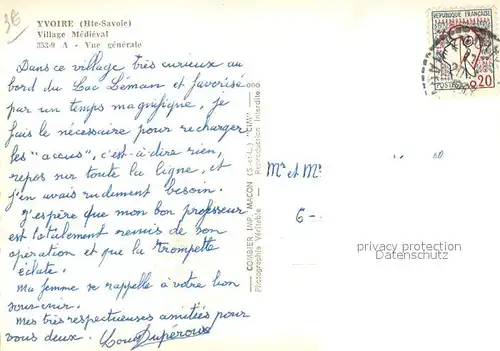 3€
YVOIRE (Hte-Savoie)
Village Médiéval
353-9 A - Vue générale
REPUBLIQUE FRANÇAISE
POSTES
0,20
Dans ce village très curieux au
bord du Lac Léman et favorisé
par un temps magnifique, je
fais le nécessaire pour recharger
les "accus", c'est-à-dire rien,
repos sur toute la ligne, et
j'en avais rudement besoin.
J'espère que mon bon professeur
est totalement remis de son
opération et que la trompette
éclate.
Ma femme se rappelle à votre bon
souvenir.
Mes très respectueuses amitiés pour
vous deux.
COMBIER IMP. MACON (S.-et-L.) "CIM"
Photographie Véritable - Reproduction interdite
Mr et Me
6-
privacy protection
Datenschutz